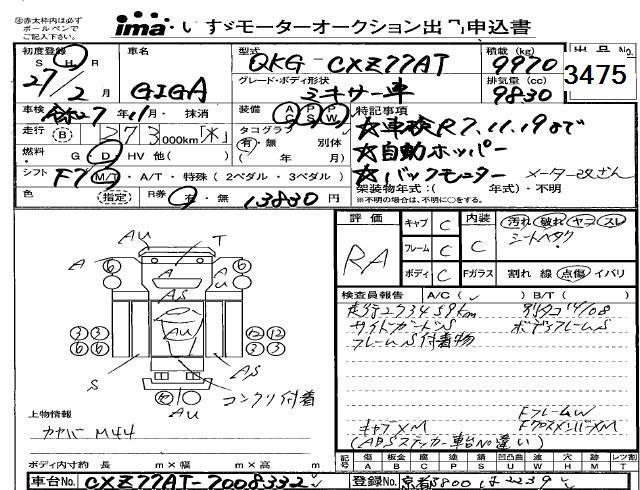 ※赤太枠内は必ず
ボールペンで
ご記入下さい。
ima いすゞモーターオークション出品申込書
初度登録
S H R
27/2月
車名
GIGA
型式
QKG-CXZ77AT
グレード・ボディ形状
ミキサー車
積載 (kg)
9970
排気量 (cc)
9830
出品No.
3475
車検 27年 11月・抹消
走行 B 273 000km
燃料 G・D HV 他( )
シフト F7 M/T・A/T・特殊(2ペダル・3ペダル)
色 (指定)
装備 AC PS PW
タコグラフ
有・無 別体
( 年 月)
R券 有・無 13830円
特記事項
☆車検R7.11.19まで
☆自動ホッパー
☆バックモニター メーター改ざん
架装物年式:( 年式)・不明
※不明の場合は、不明に○をする。
AU T
A 6 6 A
AS
AU
3 3 12 12
6 6 2 3
S AS
コンクリ付着
AU
上物情報
カヤバ M44
ボディ内寸約 長 m×幅 m×高 m
評価
RA
キャブ C
フレーム C
ボディ C
内装 C
汚れ 破れ ヤコ スレ
シートヘタク
Fガラス 割れ 線 点傷 イバリ
検査員報告 A/C( ✓ ) B/T( )
走行273459km 別タコ'14/08
サイドガードS ボディフレームS
フレームS付着物
FフレームW
キャブXM FクロスメンバーXM
(ABSステッカー車台No違い)
記号 傷 A 板金 B 腐 C 塗 P 錆 S 凹凸曲 U 波 W 穴 H 跡 M レンズ割 T
車台No. CXZ77AT-7008332
登録No. 京都 800 は 2239